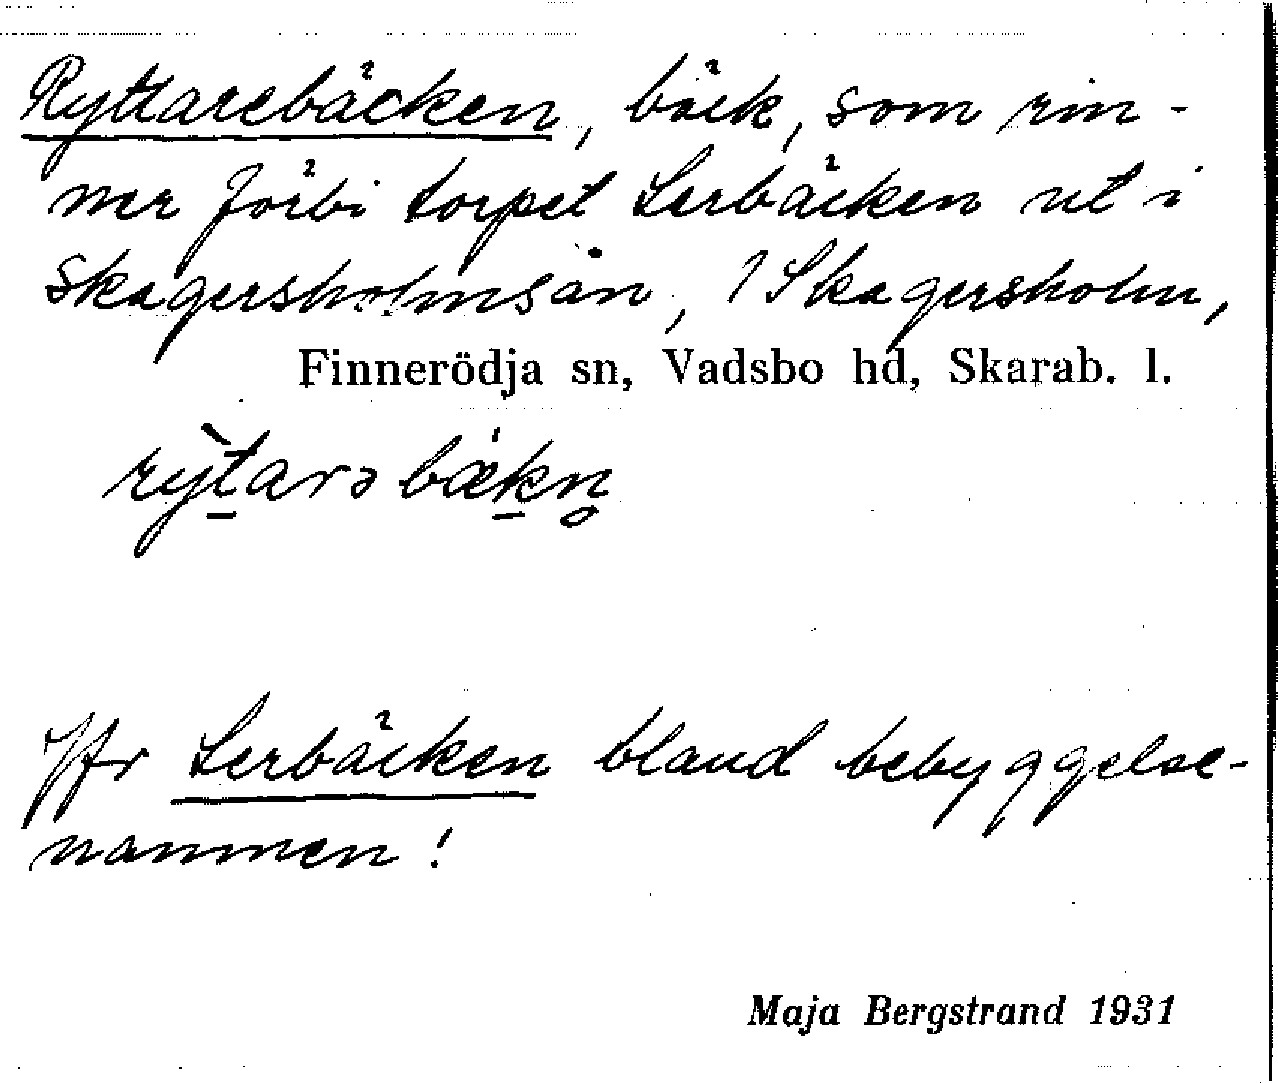 Ryttarebäcken, bäck, som rin-
ner förbi torpet Lerbäcken ut i
Skagersholmsån, 1 Skagersholm,
Finnerödja sn, Vadsbo hd, Skarab. l.
rỳtarə bækn̥
Jfr Lerbäcken bland bebyggelse-
namnen!
Maja Bergstrand 1931